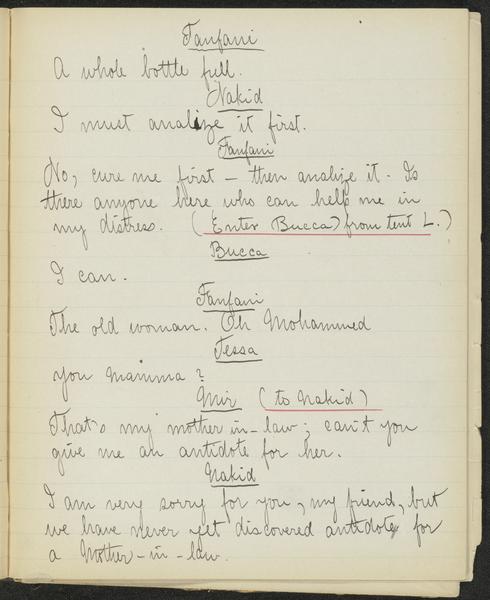 Fanfani
A whole bottle full.
Nakid
I must analize it first.
Fanfani
No, cure me first – then analize it. Is
there anyone here who can help me in
my distress. (Enter Bucca) from tent L.)
Bucca
I can.
Fanfani
The old woman. Oh Mohammed
Tessa
you Mamma?
Mir (to Nakid)
That's my mother in-law; can't you
give me an antidote for her.
Nakid
I am very sorry for you, my friend, but
we have never yet discovered antidote for
a Mother-in-law.